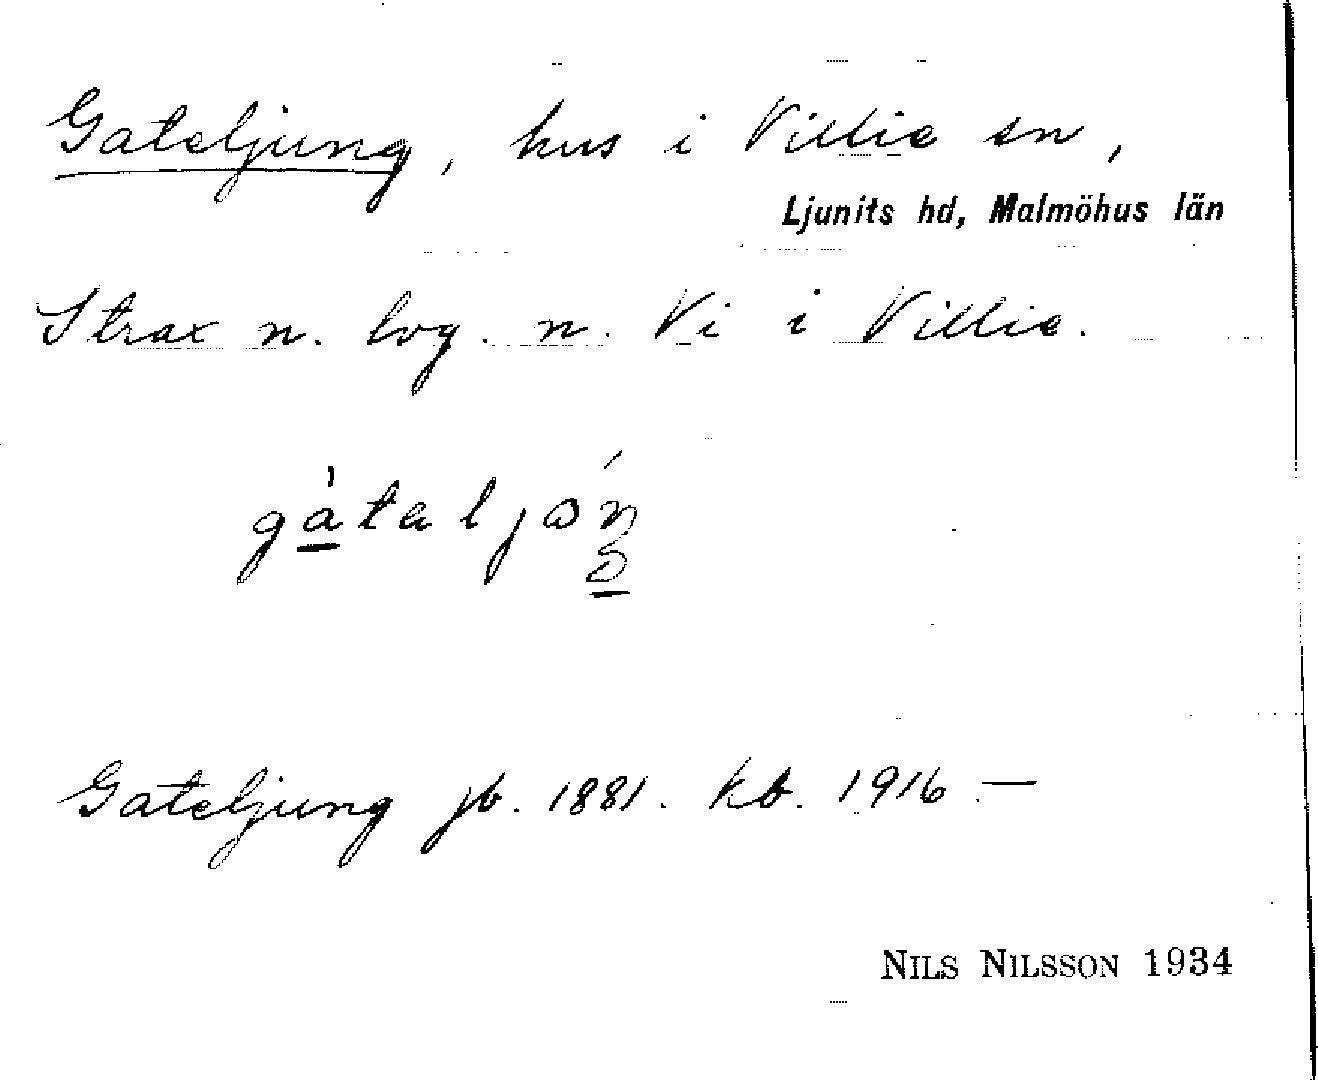 Gateljung, hus i Villie sn,
Ljunits hd, Malmöhus län
Strax n. lvg. n. Vi i Villie.
Gateljung jb. 1881. kb. 1916 —
NILS NILSSON 1934